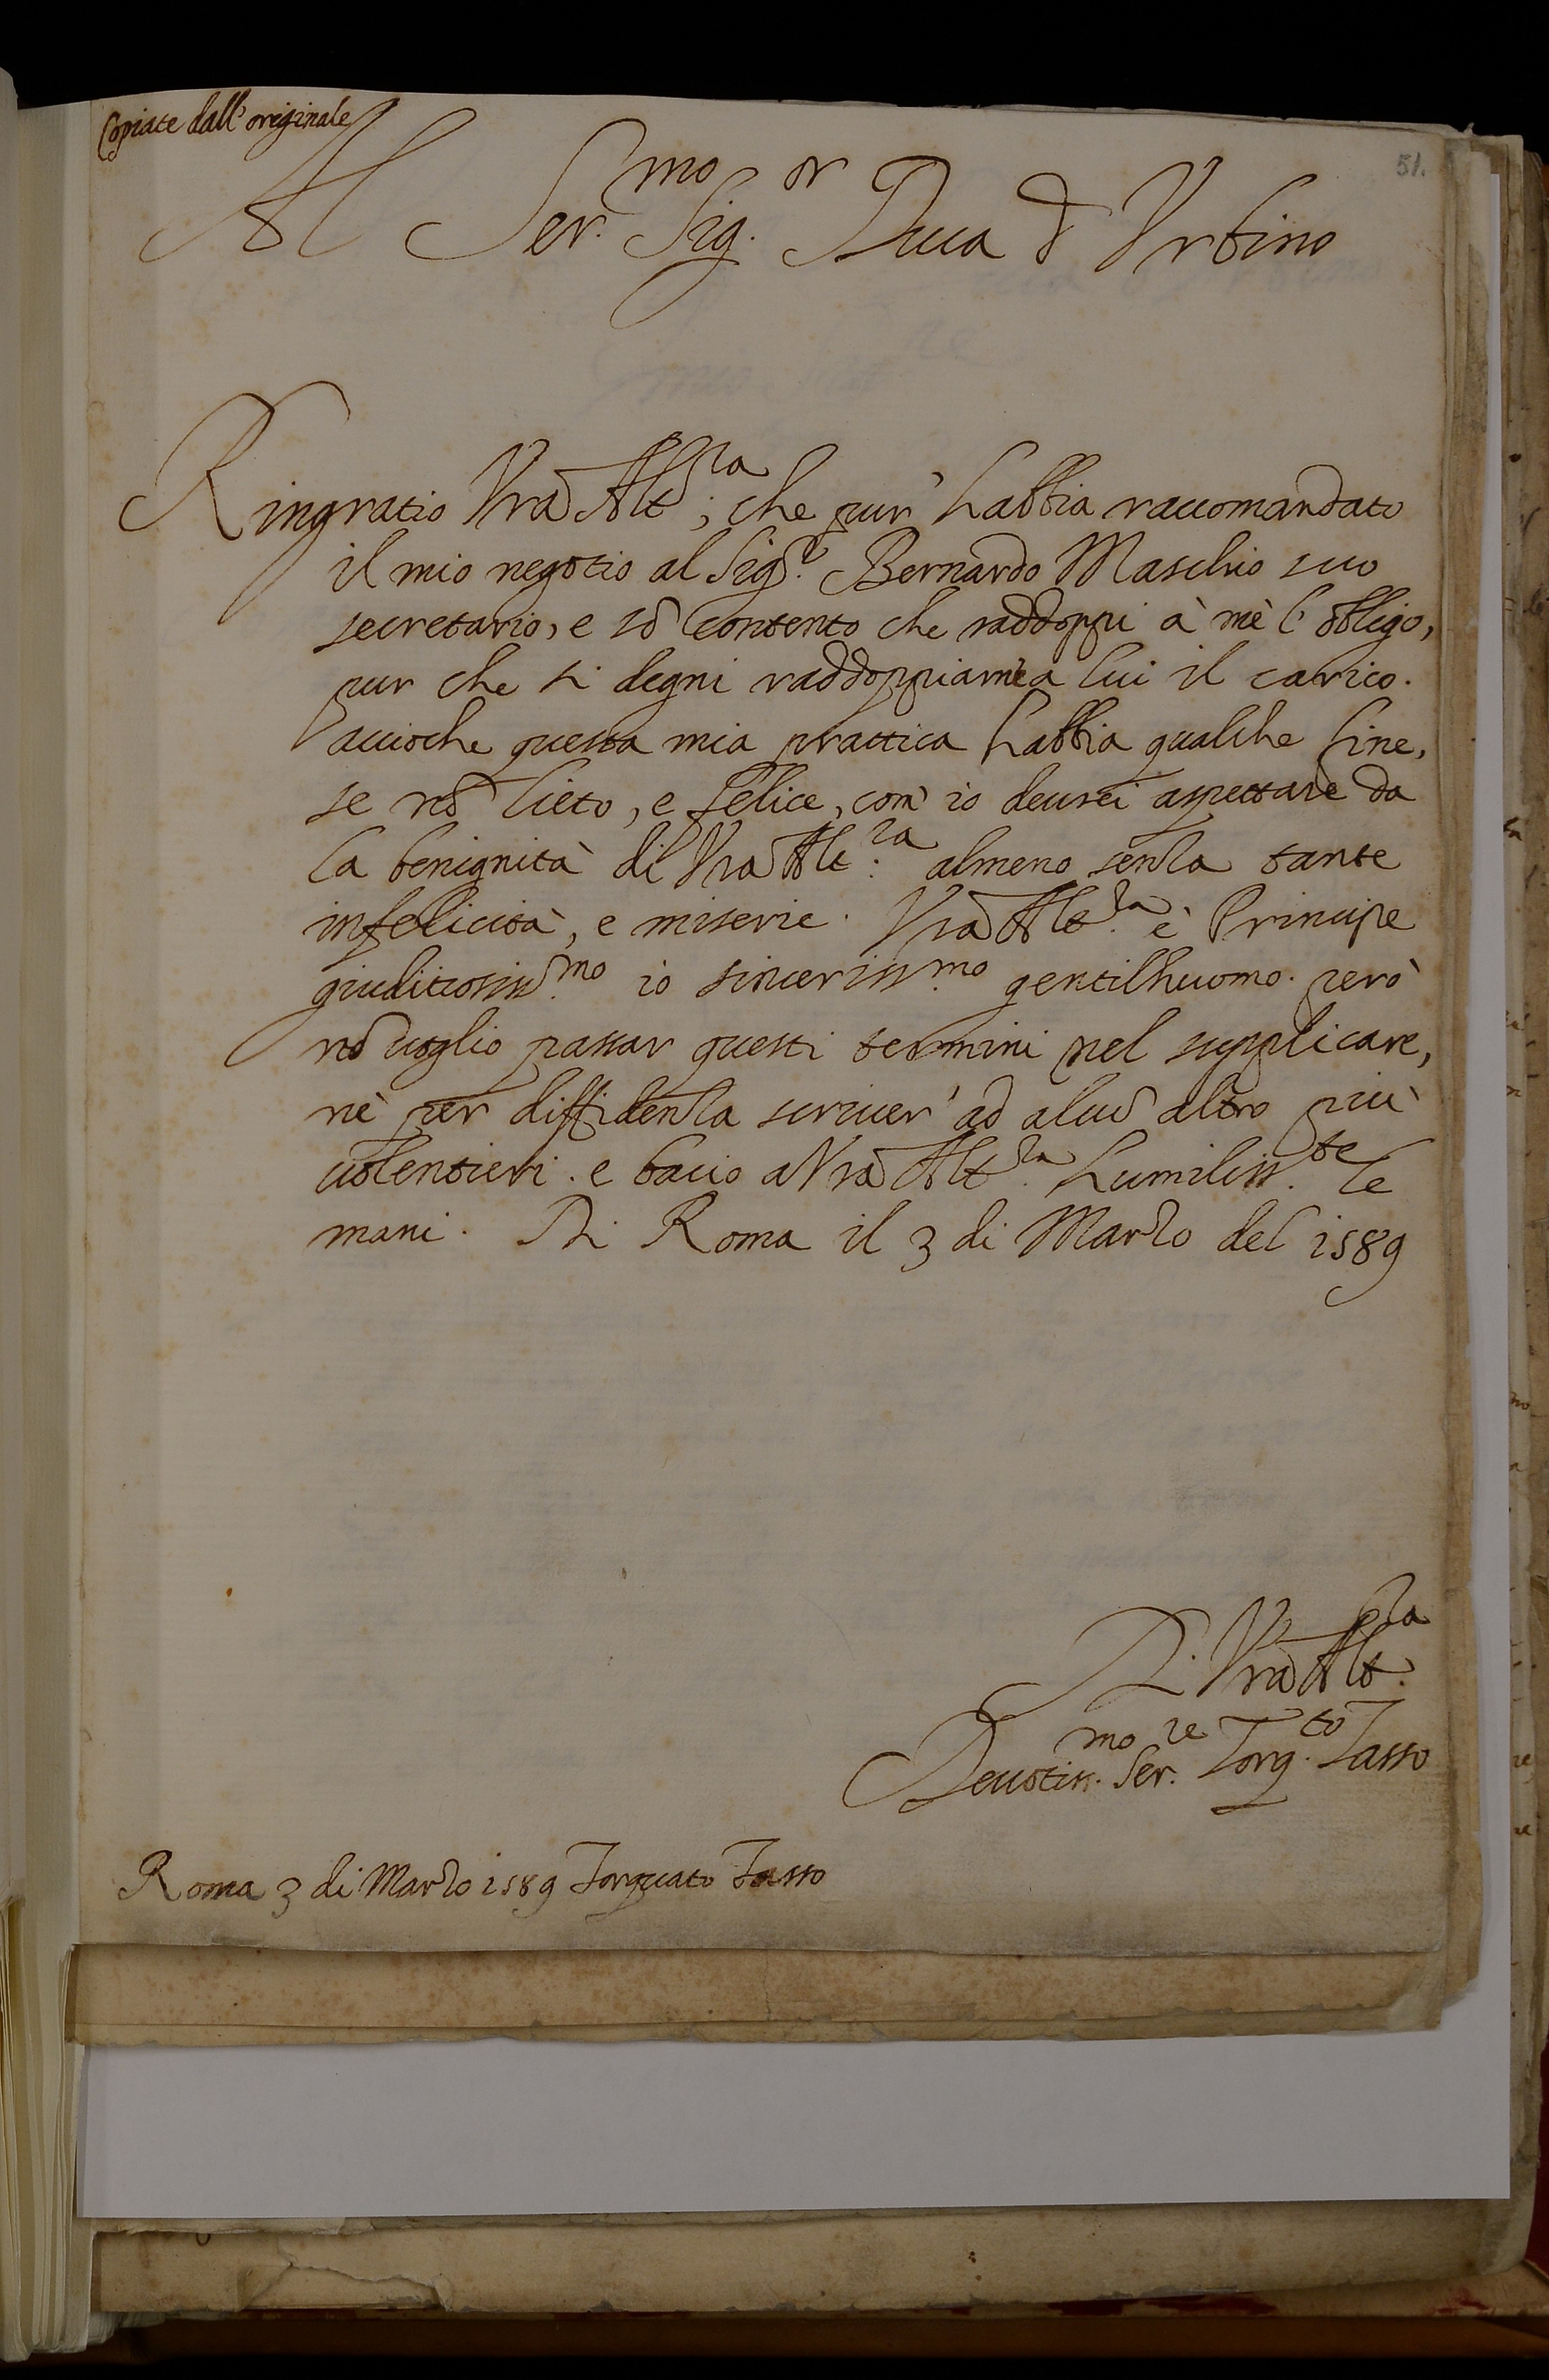 Copiate dall' originale
51.
Al Ser.mo Sig.or Duca d' Vrbino
Ringratio Vrã Alt.za; che pur' habbia raccomandato
il mio negotio al Sig.r Bernardo Maschio suo
secretario, e sõ contento che raddoppi à mè l' obligo,
pur che si degni raddoppiarne a lui il carico.
accioche questa mia prattica habbia qualche fine,
se nõ lieto, e felice, com' io deurei aspettare da
la benignità di Vrã Alt.za almeno senza tante
infelicità, e miserie. Vrã Alt.za è Principe
giuditiosiss.mo io sinceriss.mo gentilhuomo. però
nõ uoglio passar questi termini nel supplicare,
nè per diffidenza scriuer' ad alcũ altro più
uolentieri. e bacio a Vrã Alt.za humiliss.te le
mani. Di Roma il 3 di Marzo del 1589
Di Vrã Alt.za
Deuotiss.mo Ser.re Torq.to Tasso
Roma 3 di Marzo 1589 Torquato Tasso